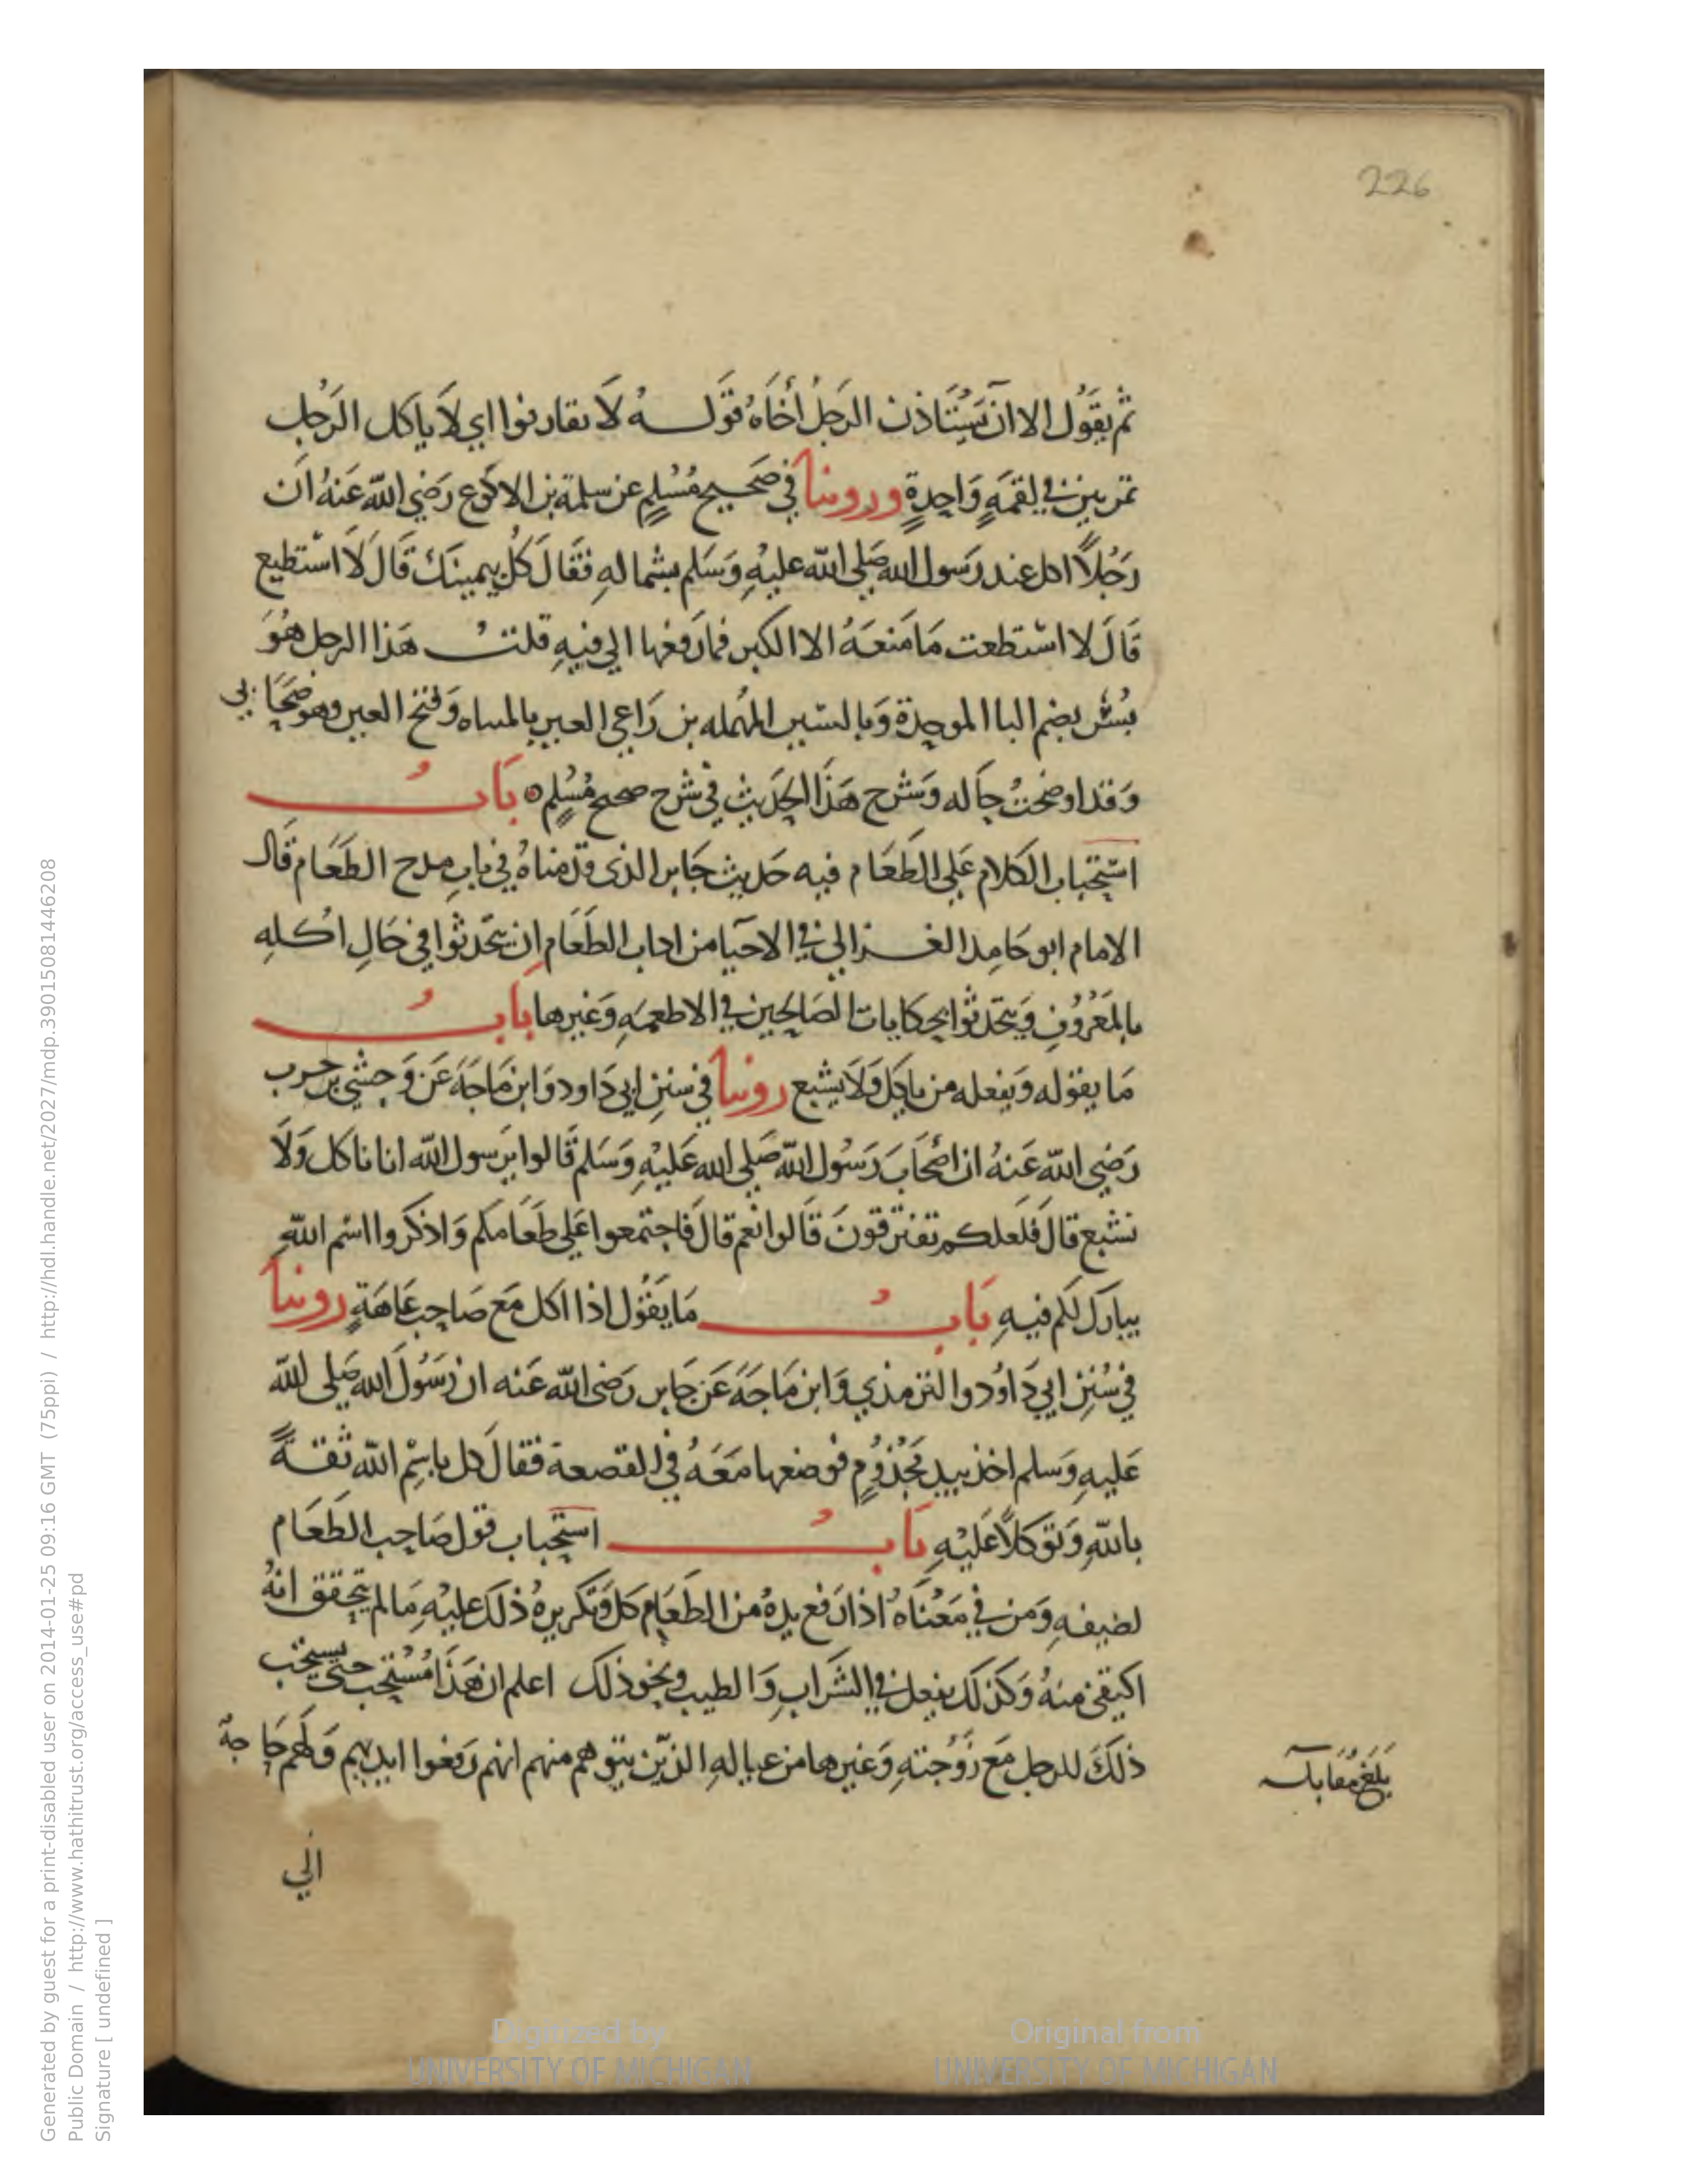 226
ثم يقول الا ان يستاذن الرجل أخاه قوله لا تقارنوا اي لا ياكل الرجل
تمرتين في لقمة واحدة وروينا في صحيح مسلم عن سلمة بن الاكوع رضي الله عنه ان
رجلاً اكل عند رسول الله صلى الله عليه وسلم بشماله فقال كل بيمينك قال لا استطيع
قال لا استطعت ما منعه الا الكبر فما رفعها الي فيه قلت هذا الرجل هو
بُسْر بضم البا الموحدة وبالسين المهمله بن راعي العير بالمثناه وفتح العين وهو صحابي
وقد اوضحت حاله وشرح هذا الحديث في شرح صحيح مسلم باب
استحباب الكلام على الطعام فيه حديث جابر الذي قدمناه في باب مدح الطعام قال
الامام ابو حامد الغزالي في الاحيا من اداب الطعام ان يتحدثوا في حال اكله
بالمعروف ويتحدثوا بحكايات الصالحين في الاطعمه وغيرها باب
ما يقوله ويفعله من ياكل ولا يشبع روينا في سنن ابي داود وابن ماجة عن وحشي بن حرب
رضي الله عنه ان اصحاب رسول الله صلى الله عليه وسلم قالوا يرسول الله انا ناكل ولا
نشبع قال فلعلكم تفترقون قالوا نعم قال فاجتمعوا على طعامكم واذكروا اسم الله
يبارك لكم فيه باب ما يقول اذا اكل مع صاحب عاهة روينا
في سنن ابي داود والترمذي وابن ماجة عن جابر رضي الله عنه ان رسول الله صلى الله
عليه وسلم اخذ بيد مجذوم فوضعها معه في القصعة فقال كل باسم الله ثقةً
بالله وتوكلاً عليه باب استحباب قول صاحب الطعام
لضيفه ومن في معناه اذا رفع يده من الطعام كل وتكريره ذلك عليه ما لم يتحقق انه
اكتفى منه وكذلك يفعل في الشراب والطيب ونحو ذلك اعلم ان هذا مستحب حتى يستحب
ذلك للرجل مع زوجته وغيرها من عياله الذين يتوهم منهم انهم رفعوا ايديهم ولهم حاجة
بلغ مقابلة
الي
Digitized by
UNIVERSITY OF MICHIGAN
Original from
UNIVERSITY OF MICHIGAN
Generated by guest for a print-disabled user on 2014-01-25 09:16 GMT (75ppi) / http://hdl.handle.net/2027/mdp.39015081446208
Public Domain / http://www.hathitrust.org/access_use#pd
Signature [ undefined ]